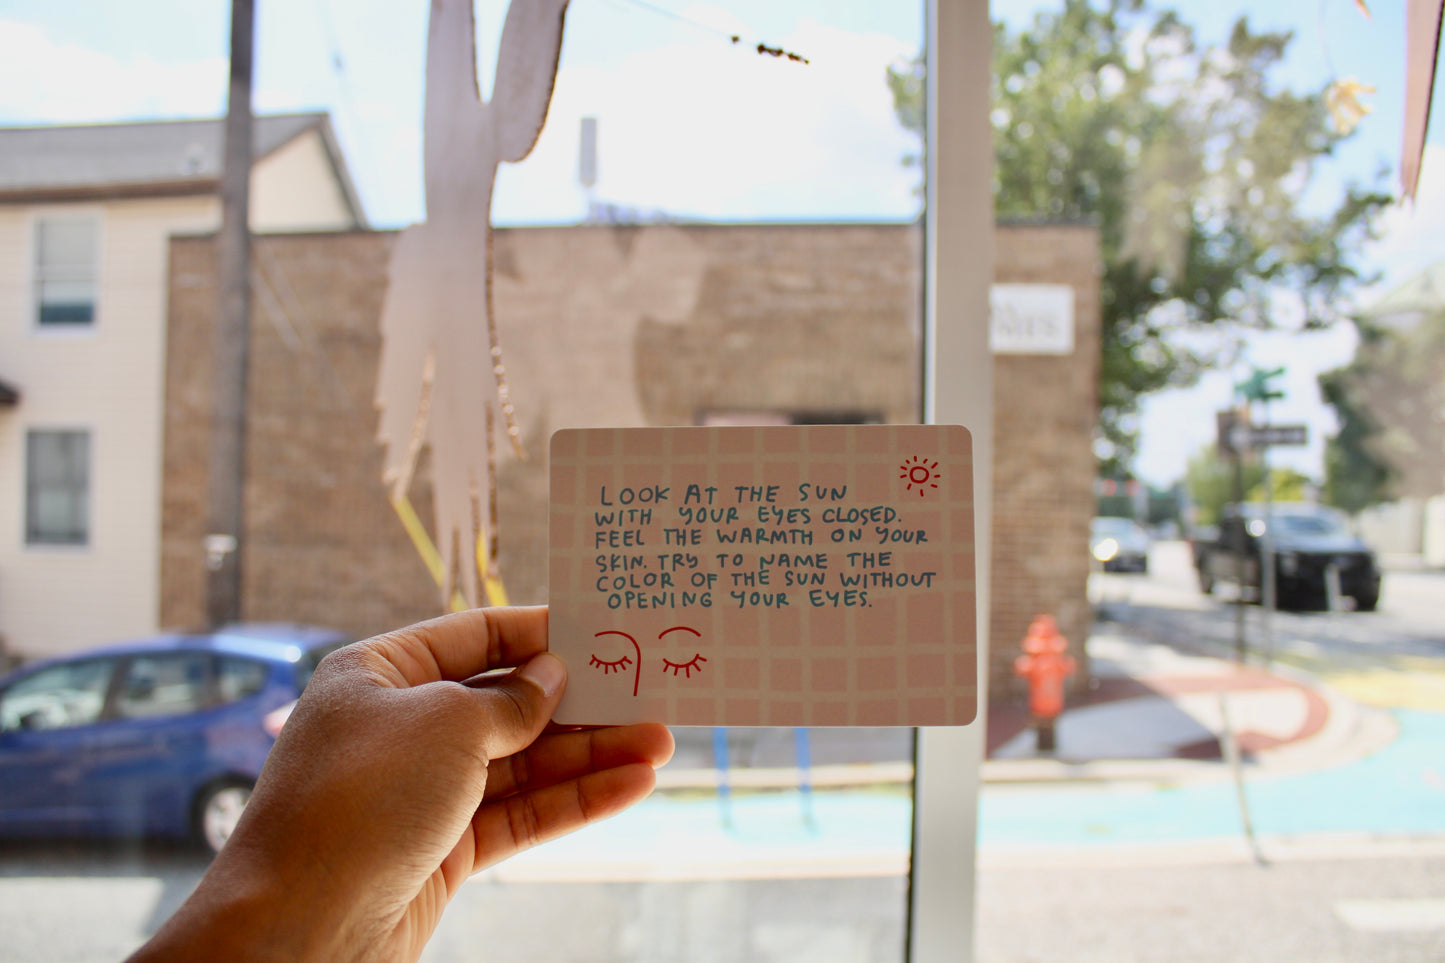 LOOK AT THE SUN
WITH YOUR EYES CLOSED.
FEEL THE WARMTH ON YOUR
SKIN. TRY TO NAME THE
COLOR OF THE SUN WITHOUT
OPENING YOUR EYES.